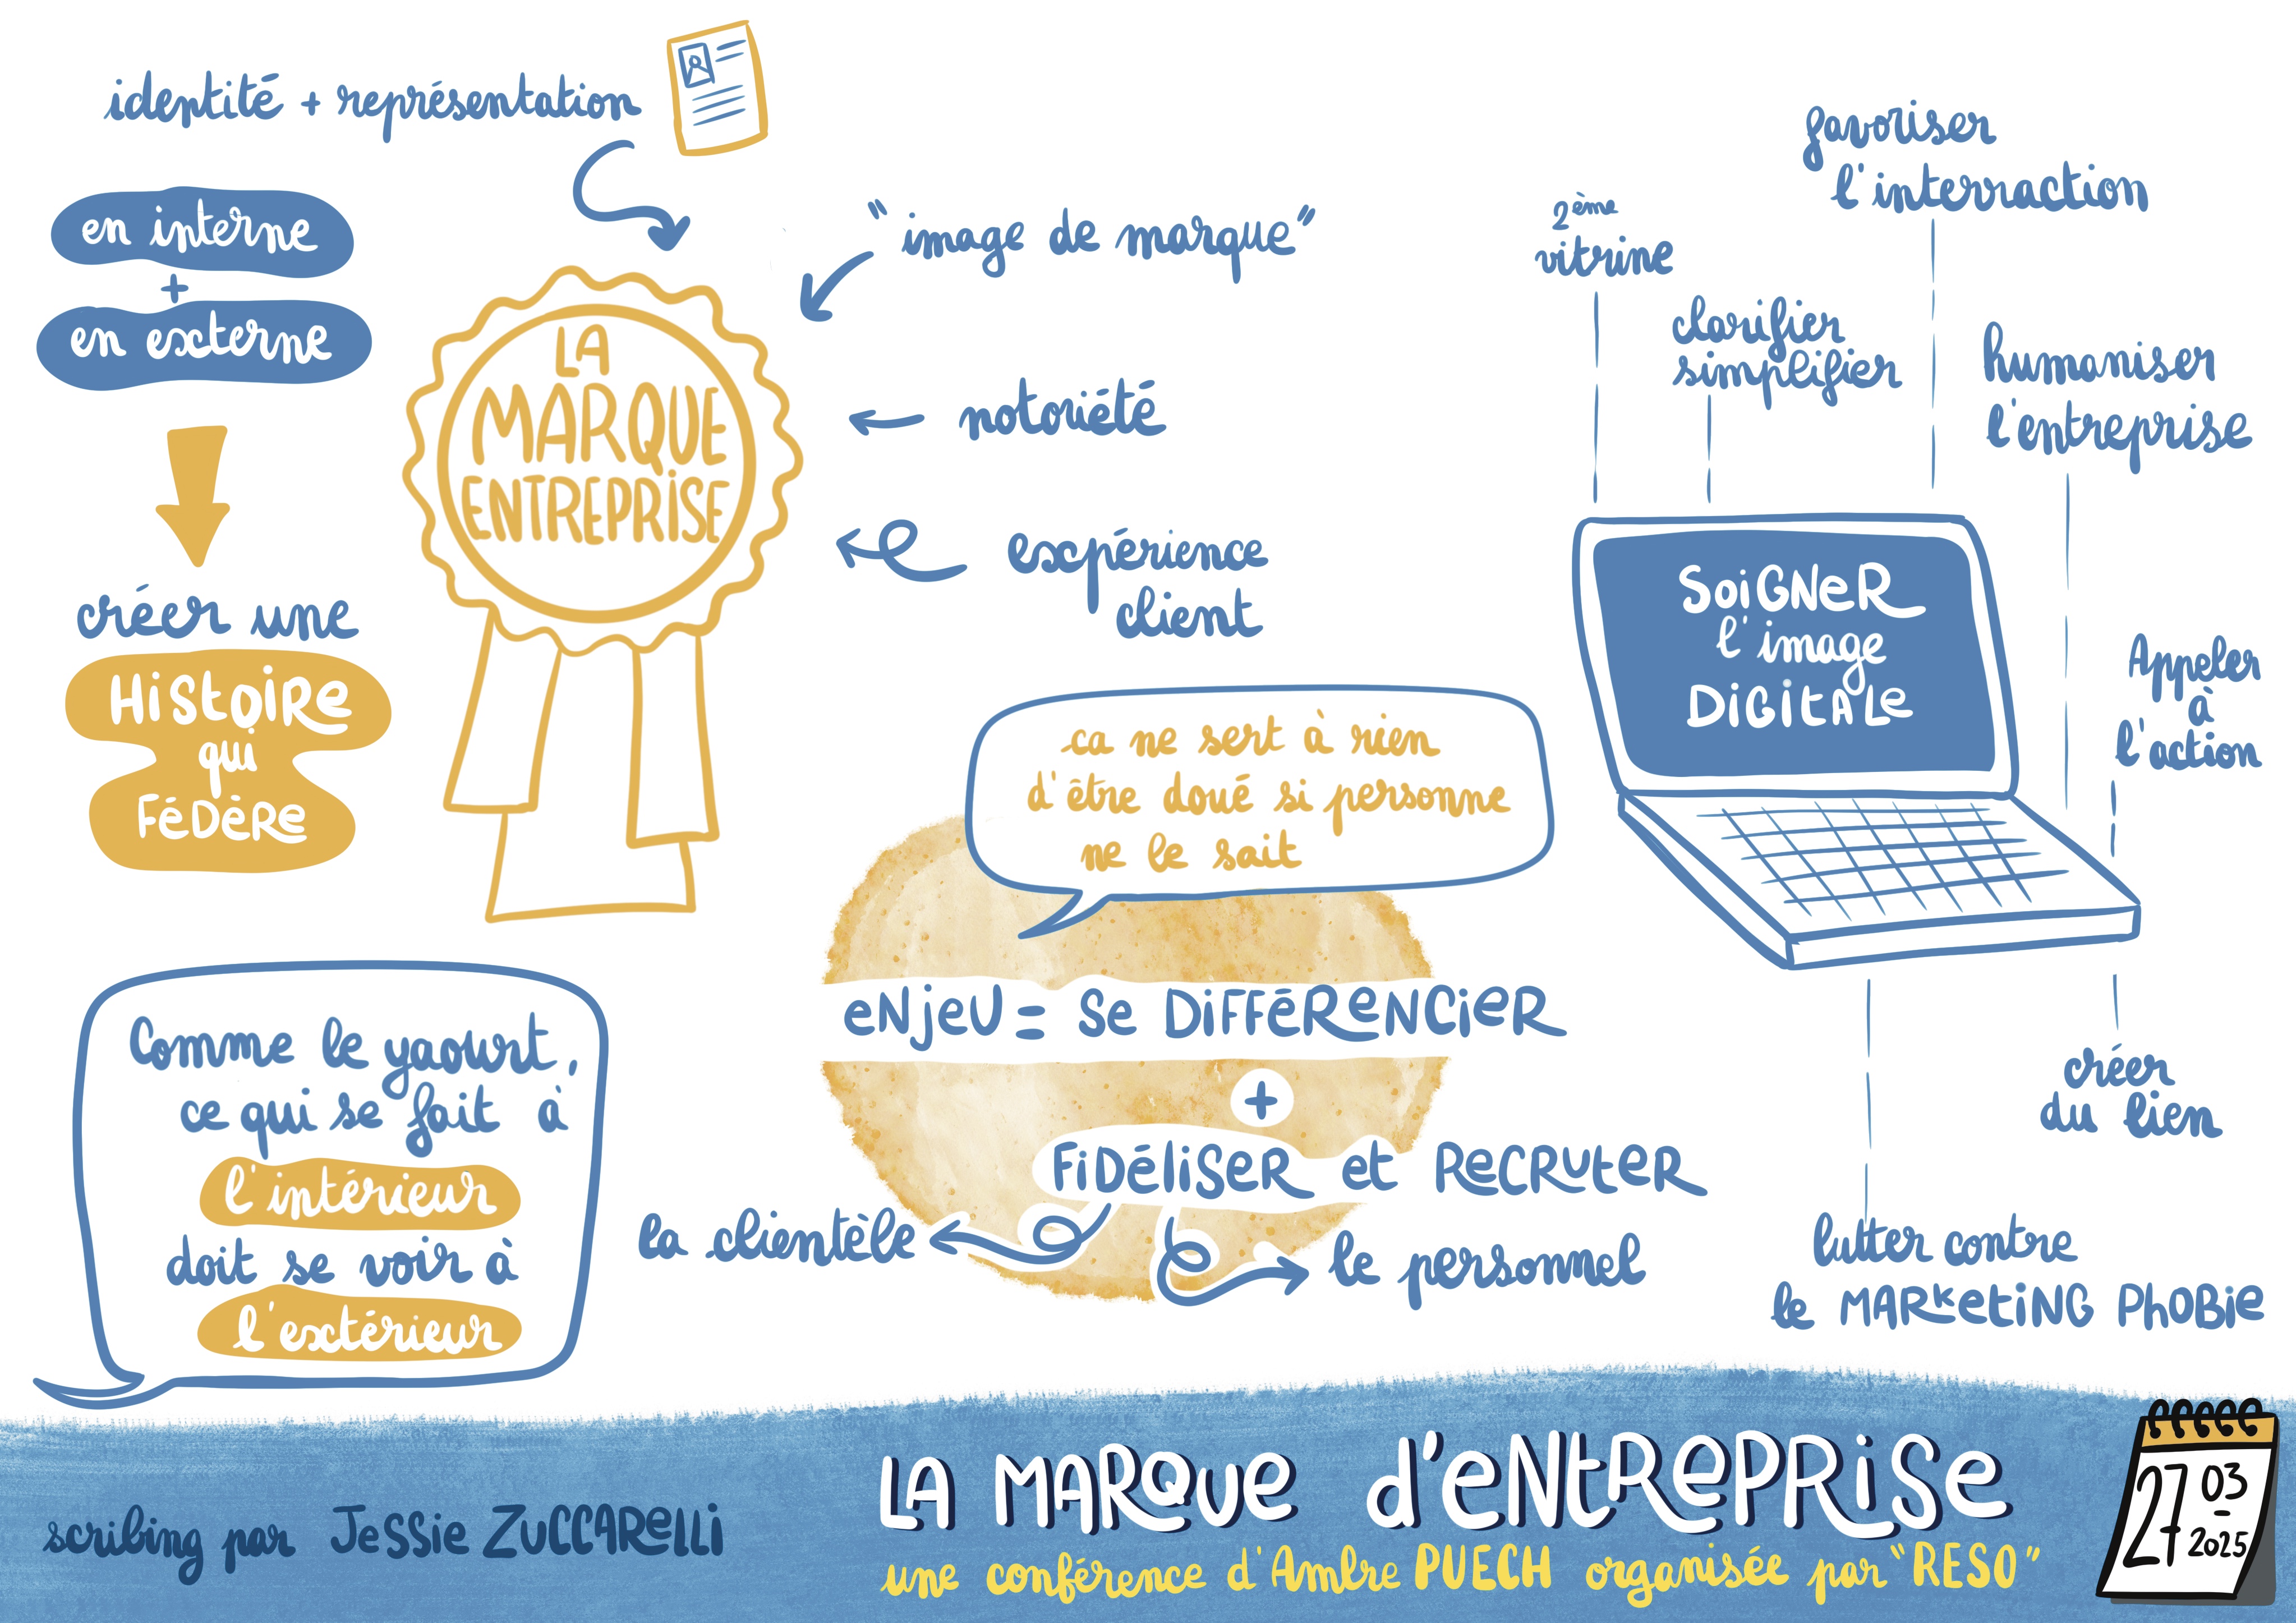 identité + représentation
en interne
+
en externe
créer une
HiStOiRe
qui
FéDèRe
LA
MARQUE
ENTREPRiSE
"image de marque"
notoriété
expérience
client
2ème
vitrine
clarifier
simplifier
favoriser
l'interraction
humaniser
l'entreprise
Appeler
à
l'action
SoiGNeR
l'image
DiGitALe
créer
du lien
lutter contre
le MARketiNG PhOBie
ca ne sert à rien
d'être doué si personne
ne le sait
eNjeU = Se DiFFéReNCieR
+
FiDéliSeR et ReCRUteR
la clientèle
le personnel
Comme le yaourt,
ce qui se fait à
l'intérieur
doit se voir à
l'extérieur
scribing par JeSSie ZUCCARelli
LA MARQUe d'eNtRePRiSe
une conférence d'Ambre PUECH organisée par "RESO"
27 03
2025